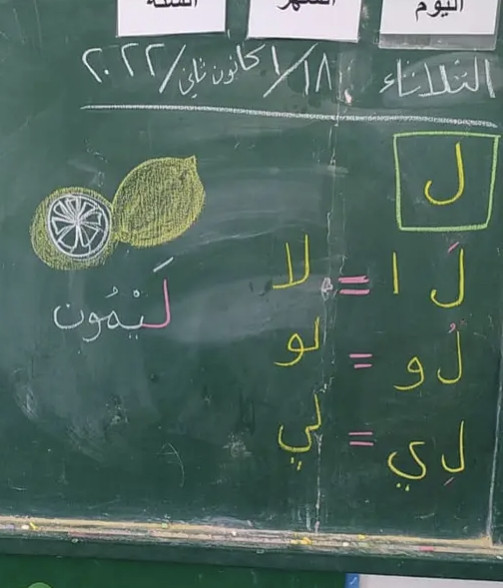 اليوم الشهر السنة
الثلاثاء ١٨/١ كانون ثاني/٢٠٢٢
ل
لَ ا = لا
لُ و = لو
لِ ي = لي
لَيْمُون